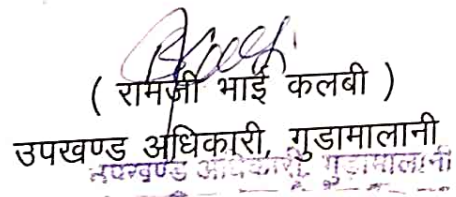 ( रामजी भाई कलबी )
उपखण्ड अधिकारी, गुडामालानी
उपखण्ड अधिकारी, गुड़ामालानी